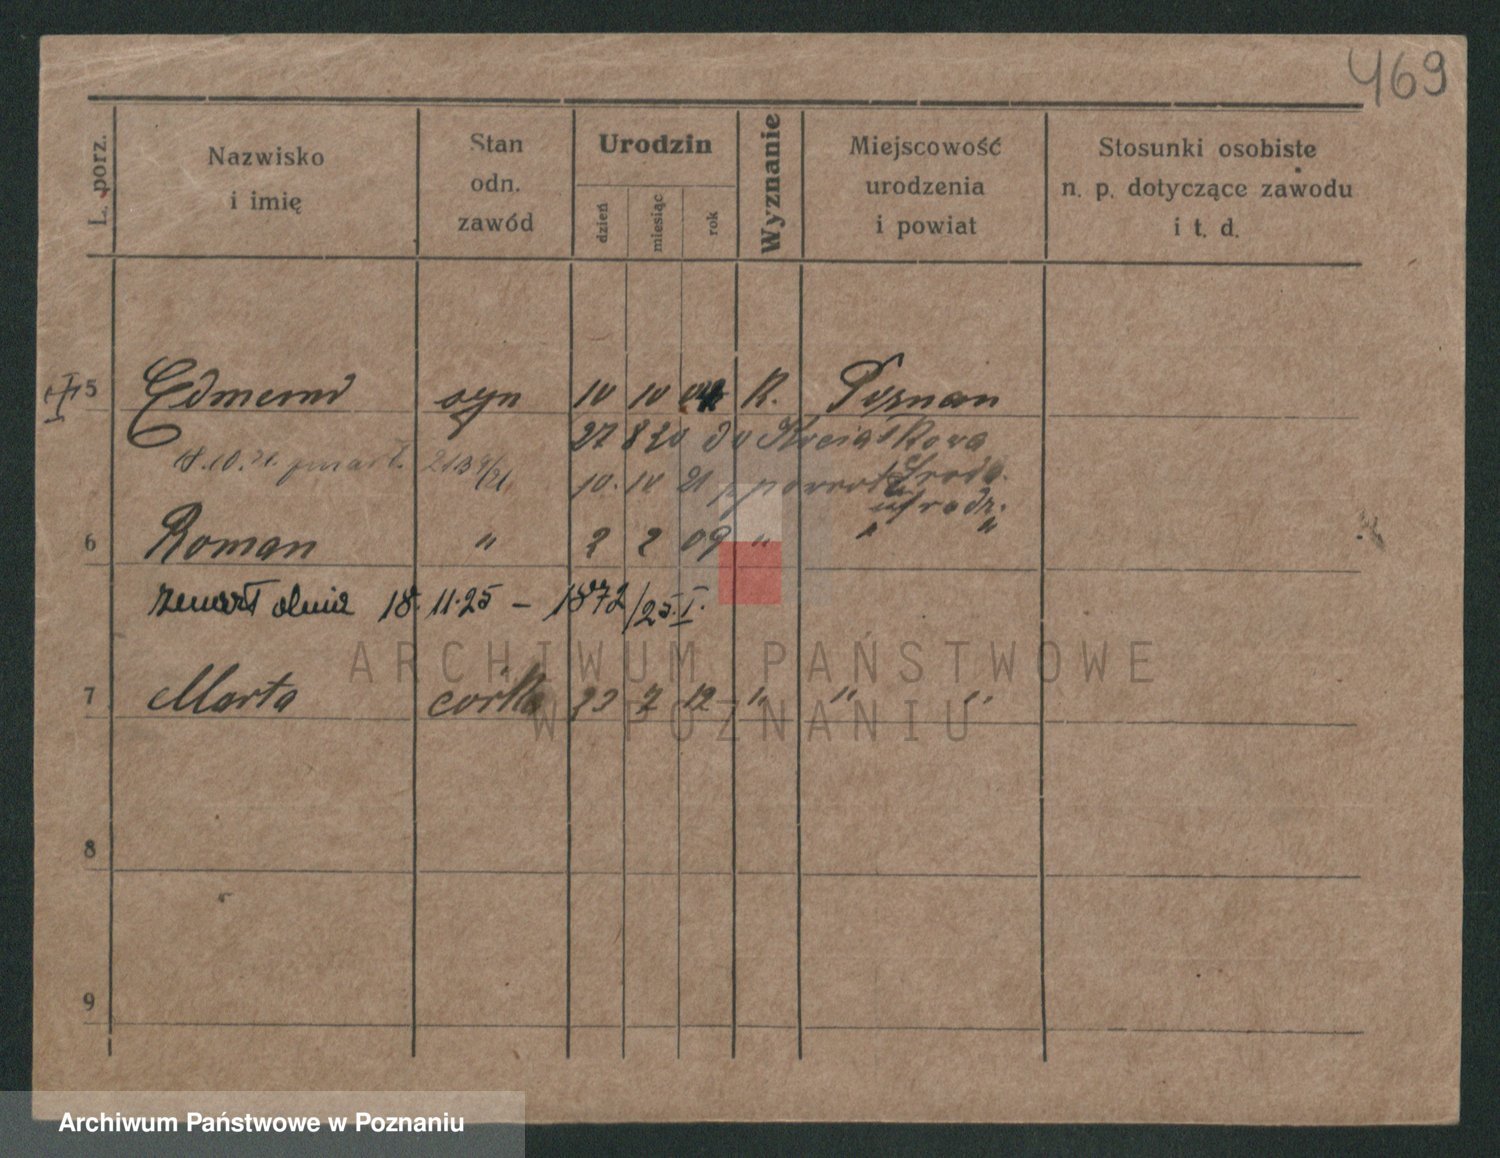 469
L. porz.
Nazwisko i imię
Stan odn. zawód
Urodzin
dzień
miesiąc
rok
Wyznanie
Miejscowość urodzenia i powiat
Stosunki osobiste n. p. dotyczące zawodu i t. d.
5 Edmund syn 10 10 04 K. Poznań
27 8 20 do
10. 10 21 z powrot
6 Roman " 2 2 09 " " "
zmarł dnia 18. 11. 25 – 1872/25. I.
7 Marta córka 7 12 " " "
8
9
ARCHIWUM PAŃSTWOWE
W POZNANIU
Archiwum Państwowe w Poznaniu